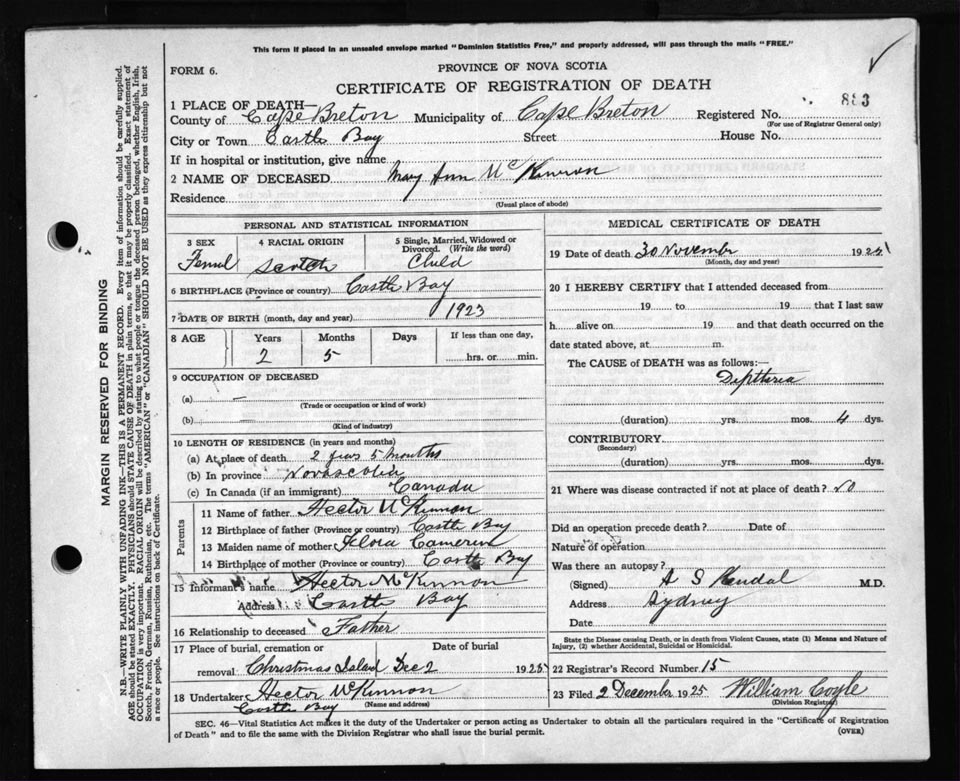 This form if placed in an unsealed envelope marked "Dominion Statistics Free," and properly addressed, will pass through the mails "FREE."
FORM 6.
PROVINCE OF NOVA SCOTIA
CERTIFICATE OF REGISTRATION OF DEATH
883
1 PLACE OF DEATH—
County of Cape Breton Municipality of Cape Breton Registered No.
(For use of Registrar General only)
City or Town Castle Bay Street House No.
If in hospital or institution, give name
2 NAME OF DECEASED Mary Ann McKinnon
Residence
(Usual place of abode)
MARGIN RESERVED FOR BINDING
N.B.—WRITE PLAINLY WITH UNFADING INK—THIS IS A PERMANENT RECORD. Every item of information should be carefully supplied.
AGE should be stated EXACTLY. PHYSICIANS should STATE CAUSE OF DEATH in plain terms, so that it may be properly classified. Exact statement of
OCCUPATION is very important. RACIAL ORIGIN will be described by stating to what people or tongue the deceased person belonged, whether English, Irish,
Scotch, French, German, Russian, Ruthenian, etc. The terms "AMERICAN" or "CANADIAN" SHOULD NOT BE USED as they express citizenship but not
a race or people. See instructions on back of Certificate.
PERSONAL AND STATISTICAL INFORMATION
3 SEX 4 RACIAL ORIGIN 5 Single, Married, Widowed or
Divorced. (Write the word)
Femal Scotch Child
6 BIRTHPLACE (Province or country) Castle Bay
7 DATE OF BIRTH (month, day and year) 1923
8 AGE Years Months Days If less than one day,
2 5 hrs. or min.
9 OCCUPATION OF DECEASED
(a) —
(Trade or occupation or kind of work)
(b) —
(Kind of industry)
10 LENGTH OF RESIDENCE (in years and months)
(a) At place of death 2 years 5 months
(b) In province Novascotia
(c) In Canada (if an immigrant) Canada
Parents
11 Name of father Hector McKinnon
12 Birthplace of father (Province or country) Castle Bay
13 Maiden name of mother Flora Cameron
14 Birthplace of mother (Province or country) Castle Bay
15 Informant's name Hector McKinnon
Address Castle Bay
16 Relationship to deceased Father
17 Place of burial, cremation or Date of burial
removal Christmas Island Dec 2 1925
18 Undertaker Hector McKinnon
Castle Bay (Name and address)
MEDICAL CERTIFICATE OF DEATH
19 Date of death 30 November 1925
(Month, day and year)
20 I HEREBY CERTIFY that I attended deceased from
19 to 19 that I last saw
h alive on 19 and that death occurred on the
date stated above, at m.
The CAUSE of DEATH was as follows:—
Diptteria
(duration) yrs. mos. 4 dys.
CONTRIBUTORY
(Secondary)
(duration) yrs. mos. dys.
21 Where was disease contracted if not at place of death? No
Did an operation precede death? Date of
Nature of operation
Was there an autopsy?
(Signed) A S Kendal M.D.
Address Sydney
Date
State the Disease causing Death, or in death from Violent Causes, state (1) Means and Nature of
Injury, (2) whether Accidental, Suicidal or Homicidal.
22 Registrar's Record Number 15
23 Filed 2 December 1925 William Coyle
(Division Registrar)
SEC. 46—Vital Statistics Act makes it the duty of the Undertaker or person acting as Undertaker to obtain all the particulars required in the "Certificate of Registration
of Death" and to file the same with the Division Registrar who shall issue the burial permit.
(OVER)